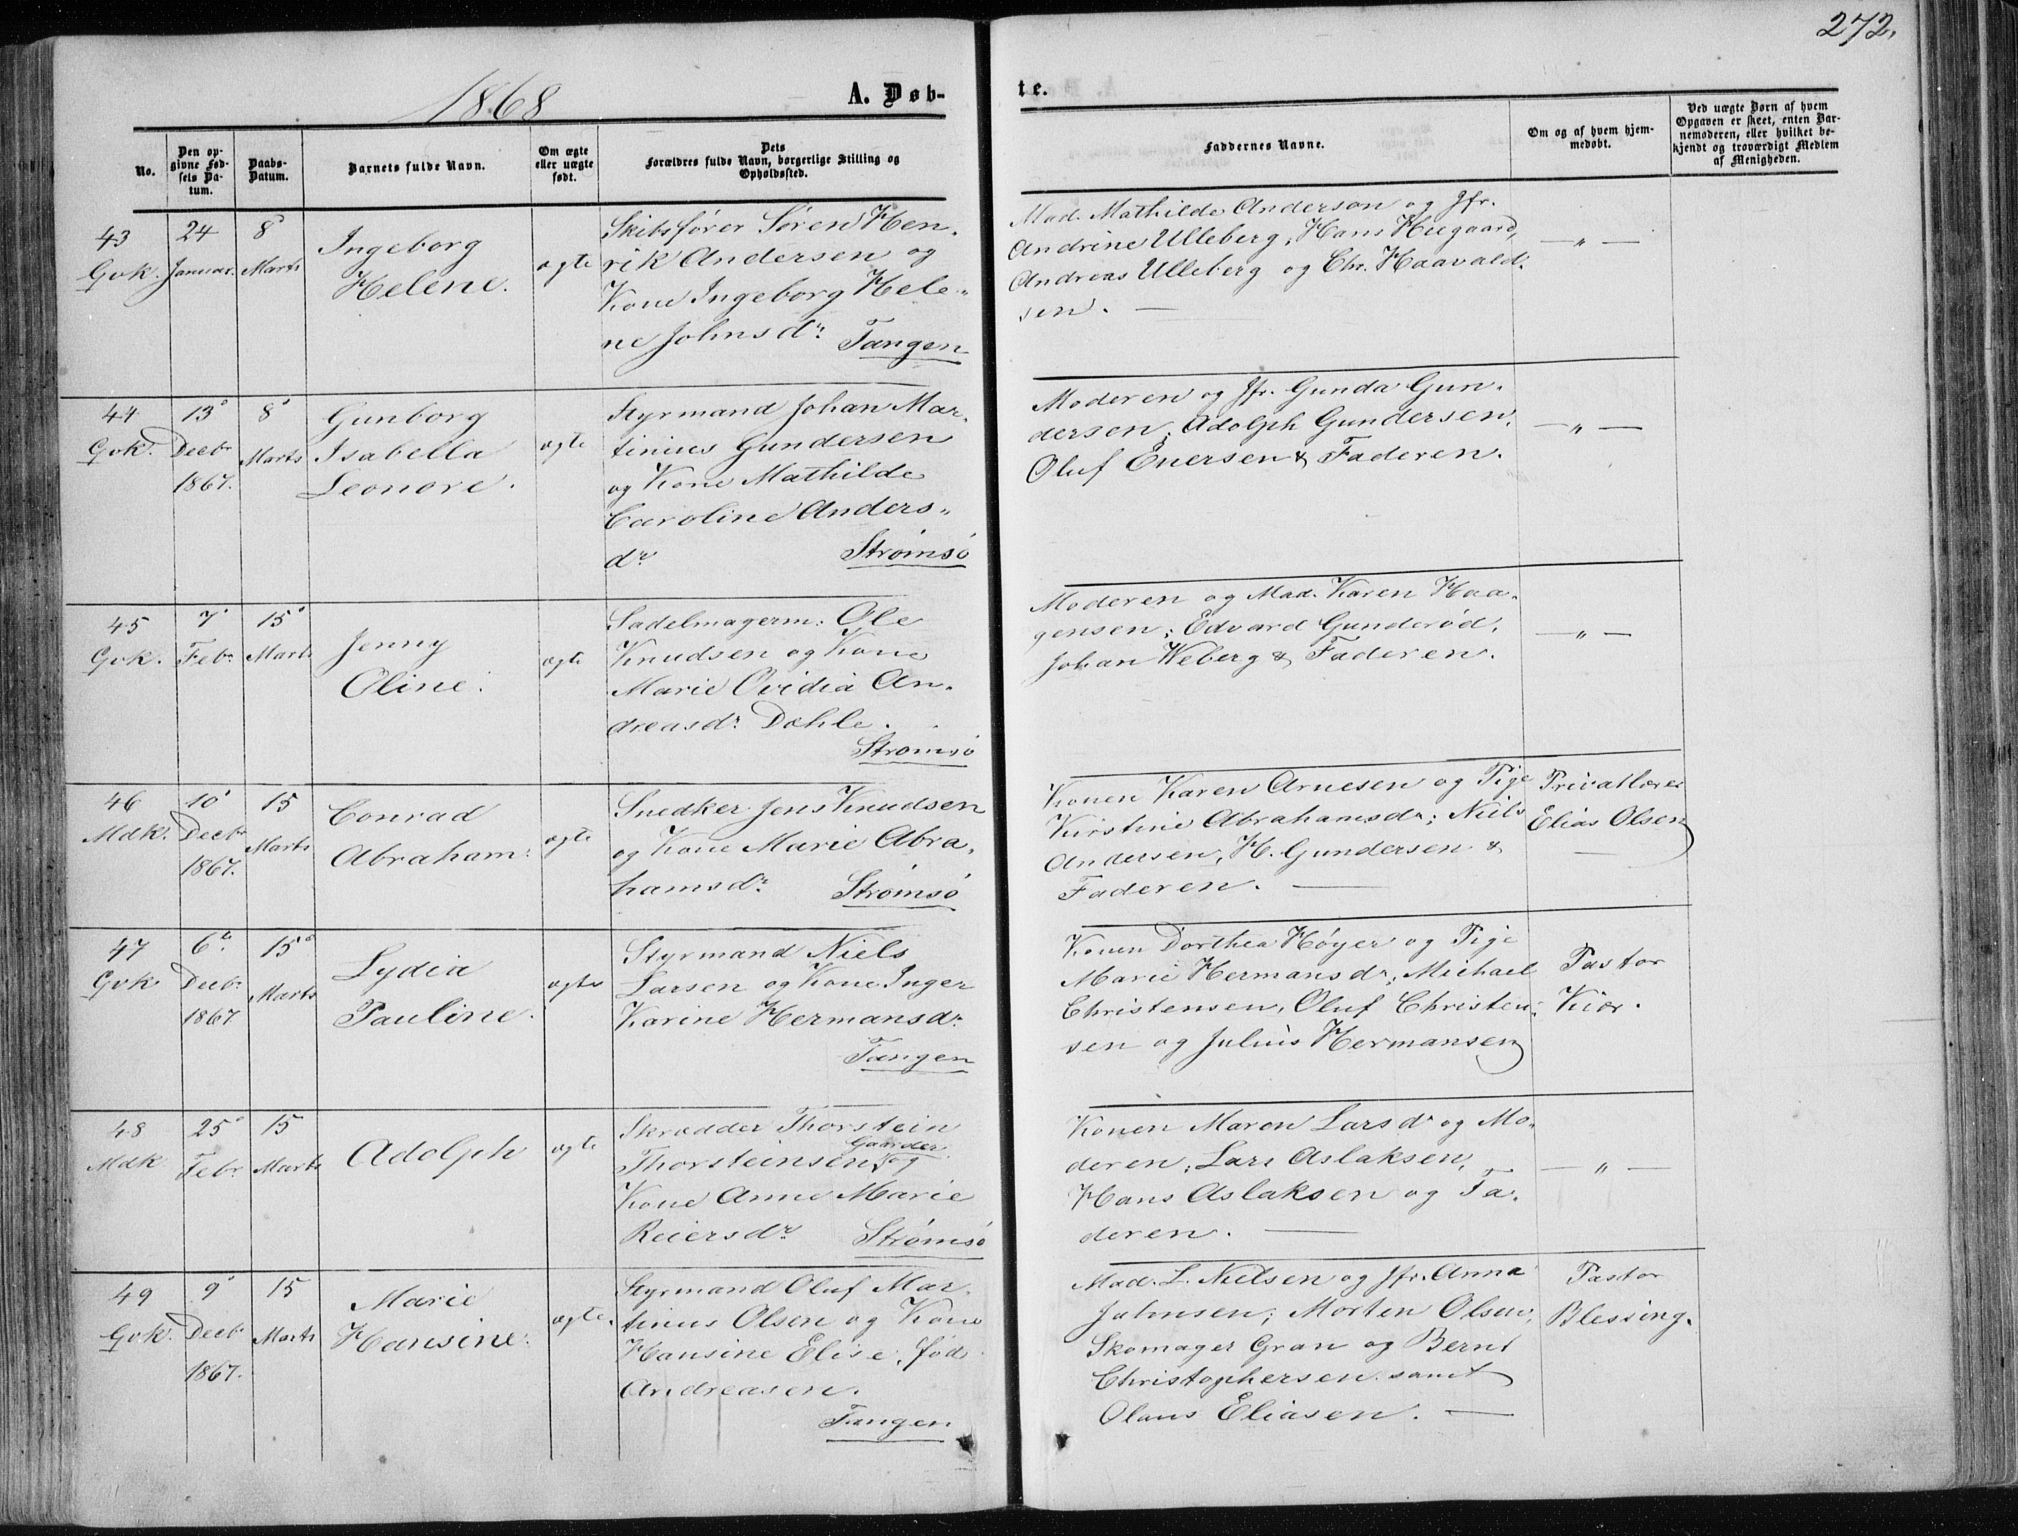 272.
1868
A. Døb-
te.
No.
Den op-
givne Fød-
sels Da-
tum.
Daabs-
Datum.
Barnets fulde Navn.
Om ægte
eller uægte
født.
Dets
Forældres fulde Navn, borgerlige Stilling og
Opholdssted.
Faddernes Navne.
Om og af hvem hjem-
medøbt.
Ved uægte Børn af hvem
Opgaven er skeet, enten Bar-
nemoderen, eller hvilket be-
kjendt og troværdigt Medlem
af Menigheden.
43
Gvk.
24
Januar.
8
Marts
Ingeborg
Helene.
ægte
Skibsfører Søren Hen-
rik Andersen og
Kone Ingeborg Hele-
ne Johnsdr. Tangen
Mad. Mathilde Anderson og Jfr.
Andrine Ulleberg, Hans Hugaard,
Andreas Ulleberg og Chr. Haavald-
sen. —
— " —
44
Gvk.
13
Decbr
1867.
8
Marts
Gunborg
Isabella
Leonore.
ægte
Styrmand Johan Mar-
tinius Gundersen
og Kone Mathilde
Caroline Anders-
dr. Strømsö
Moderen og Jfr. Gunda Gun-
dersen; Adolph Gundersen,
Oluf Enersen & Faderen.
— " —
45
Gvk.
7
Febr.
15
Marts
Jenny
Oline.
ægte
Sadelmagerm: Ole
Knudsen og Kone
Marie Ovidia An-
dreasdr. Dahle.
Strømsö
Moderen og Mad. Karen Haa-
gensen; Edvard Gunderöd,
Johan Weberg & Faderen.
— " —
46
Mdk.
10
Decbr
1867.
15
Marts
Conrad
Abraham.
ægte
Snedker Jens Knudsen
og Kone Marie Abra-
hamsdr. Strømsö
Konen Karen Arnesen og Pige
Kirstine Abrahamsdr.; Niels
Andersen, H. Gundersen &
Faderen. —
Privatlærer
Elias Olsen
—
47
Gvk
6
Decbr.
1867
15
Marts
Lydia
Pauline.
ægte
Styrmand Niels
Larsen og Kone Inger
Karine Hermansdr.
Tangen
Konen Dorthea Høyer og Pige
Marie Hermansdr.; Michael
Christensen, Oluf Christen-
sen og Julius Hermansen
Pastor
Kiær.
48
Mdk
25
Febr
15
Marts
Adolph
ægte
Skrædder Thorstein
Gaarder
Thorsteinsen og
Kone Anne Marie
Reiersdr. Strømsö
Konen Maren Larsdr. og Mo-
deren; Lars Aslaksen,
Hans Aslaksen og Fa-
deren. —
— " —
49
Gvk.
9
Decbr
1867.
15
Marts
Marie
Hansine.
ægte.
Styrmand Oluf Mar-
tinius Olsen og Kone
Hansine Elise, fød
Andreasen.
Tangen
Mad. L. Nielsen og Jfr. Anna
Johnsen; Morten Olsen,
Skomager Gran og Bernt
Christophersen samt
Olaus Eliasen. —
Pastor
Blessing.